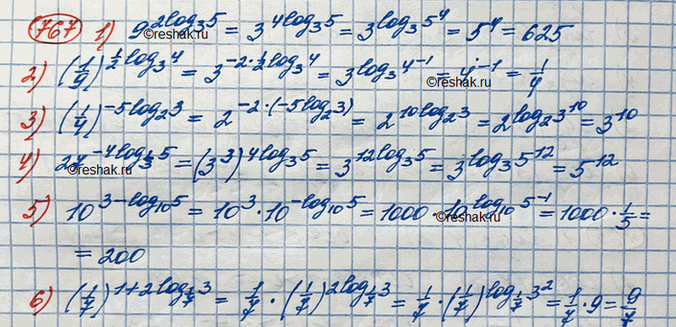 767 1) 9^{2log_3 5} = 3^{4log_3 5} = 3^{log_3 5^4} = 5^4 = 625
©reshak.ru
2) (1/9)^{1/2 log_3 4} = 3^{-2·1/2 log_3 4} = 3^{log_3 4^{-1}} = 4^{-1} = 1/4
©reshak.ru
3) (1/4)^{-5log_2 3} = 2^{-2·(-5log_2 3)} = 2^{10log_2 3} = 2^{log_2 3^{10}} = 3^{10}
4) 27^{-4log_{1/3} 5} = (3^3)^{4log_3 5} = 3^{12log_3 5} = 3^{log_3 5^{12}} = 5^{12}
©reshak.ru
5) 10^{3-log_{10} 5} = 10^3 · 10^{-log_{10} 5} = 1000 · 10^{log_{10} 5^{-1}} = 1000 · 1/5 =
©reshak.ru
= 200
6) (1/7)^{1+2log_{1/7} 3} = 1/7 · (1/7)^{2log_{1/7} 3} = 1/7 · (1/7)^{log_{1/7} 3^2} = 1/7 · 9 = 9/7